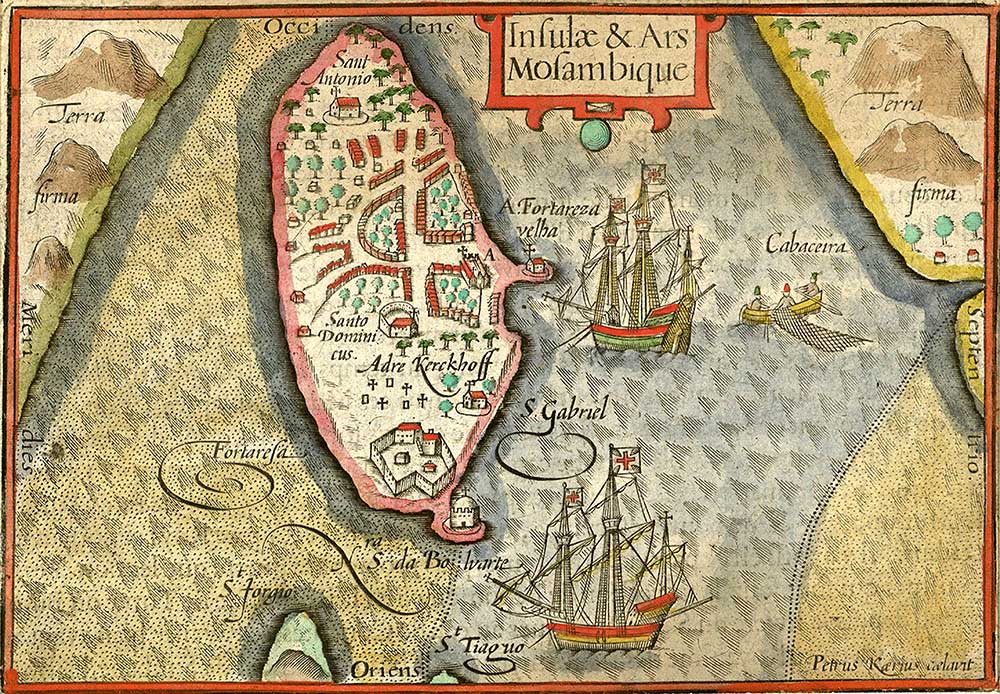 Occidens
Insulæ & Ars
Mosambique
Terra
firma
Saut
Antonio
Terra
firma
A. Fortareza
velha
A
Cabaceira
Meri
dies
Septen
trio
Santo
Domini
cus.
Adre Kerckhoff
S. Gabriel
Fortaresa
S.ra da Bolwarte
S.t Jorgio
S.t Tiaguo
Oriens
Petrus Kærius cælavit